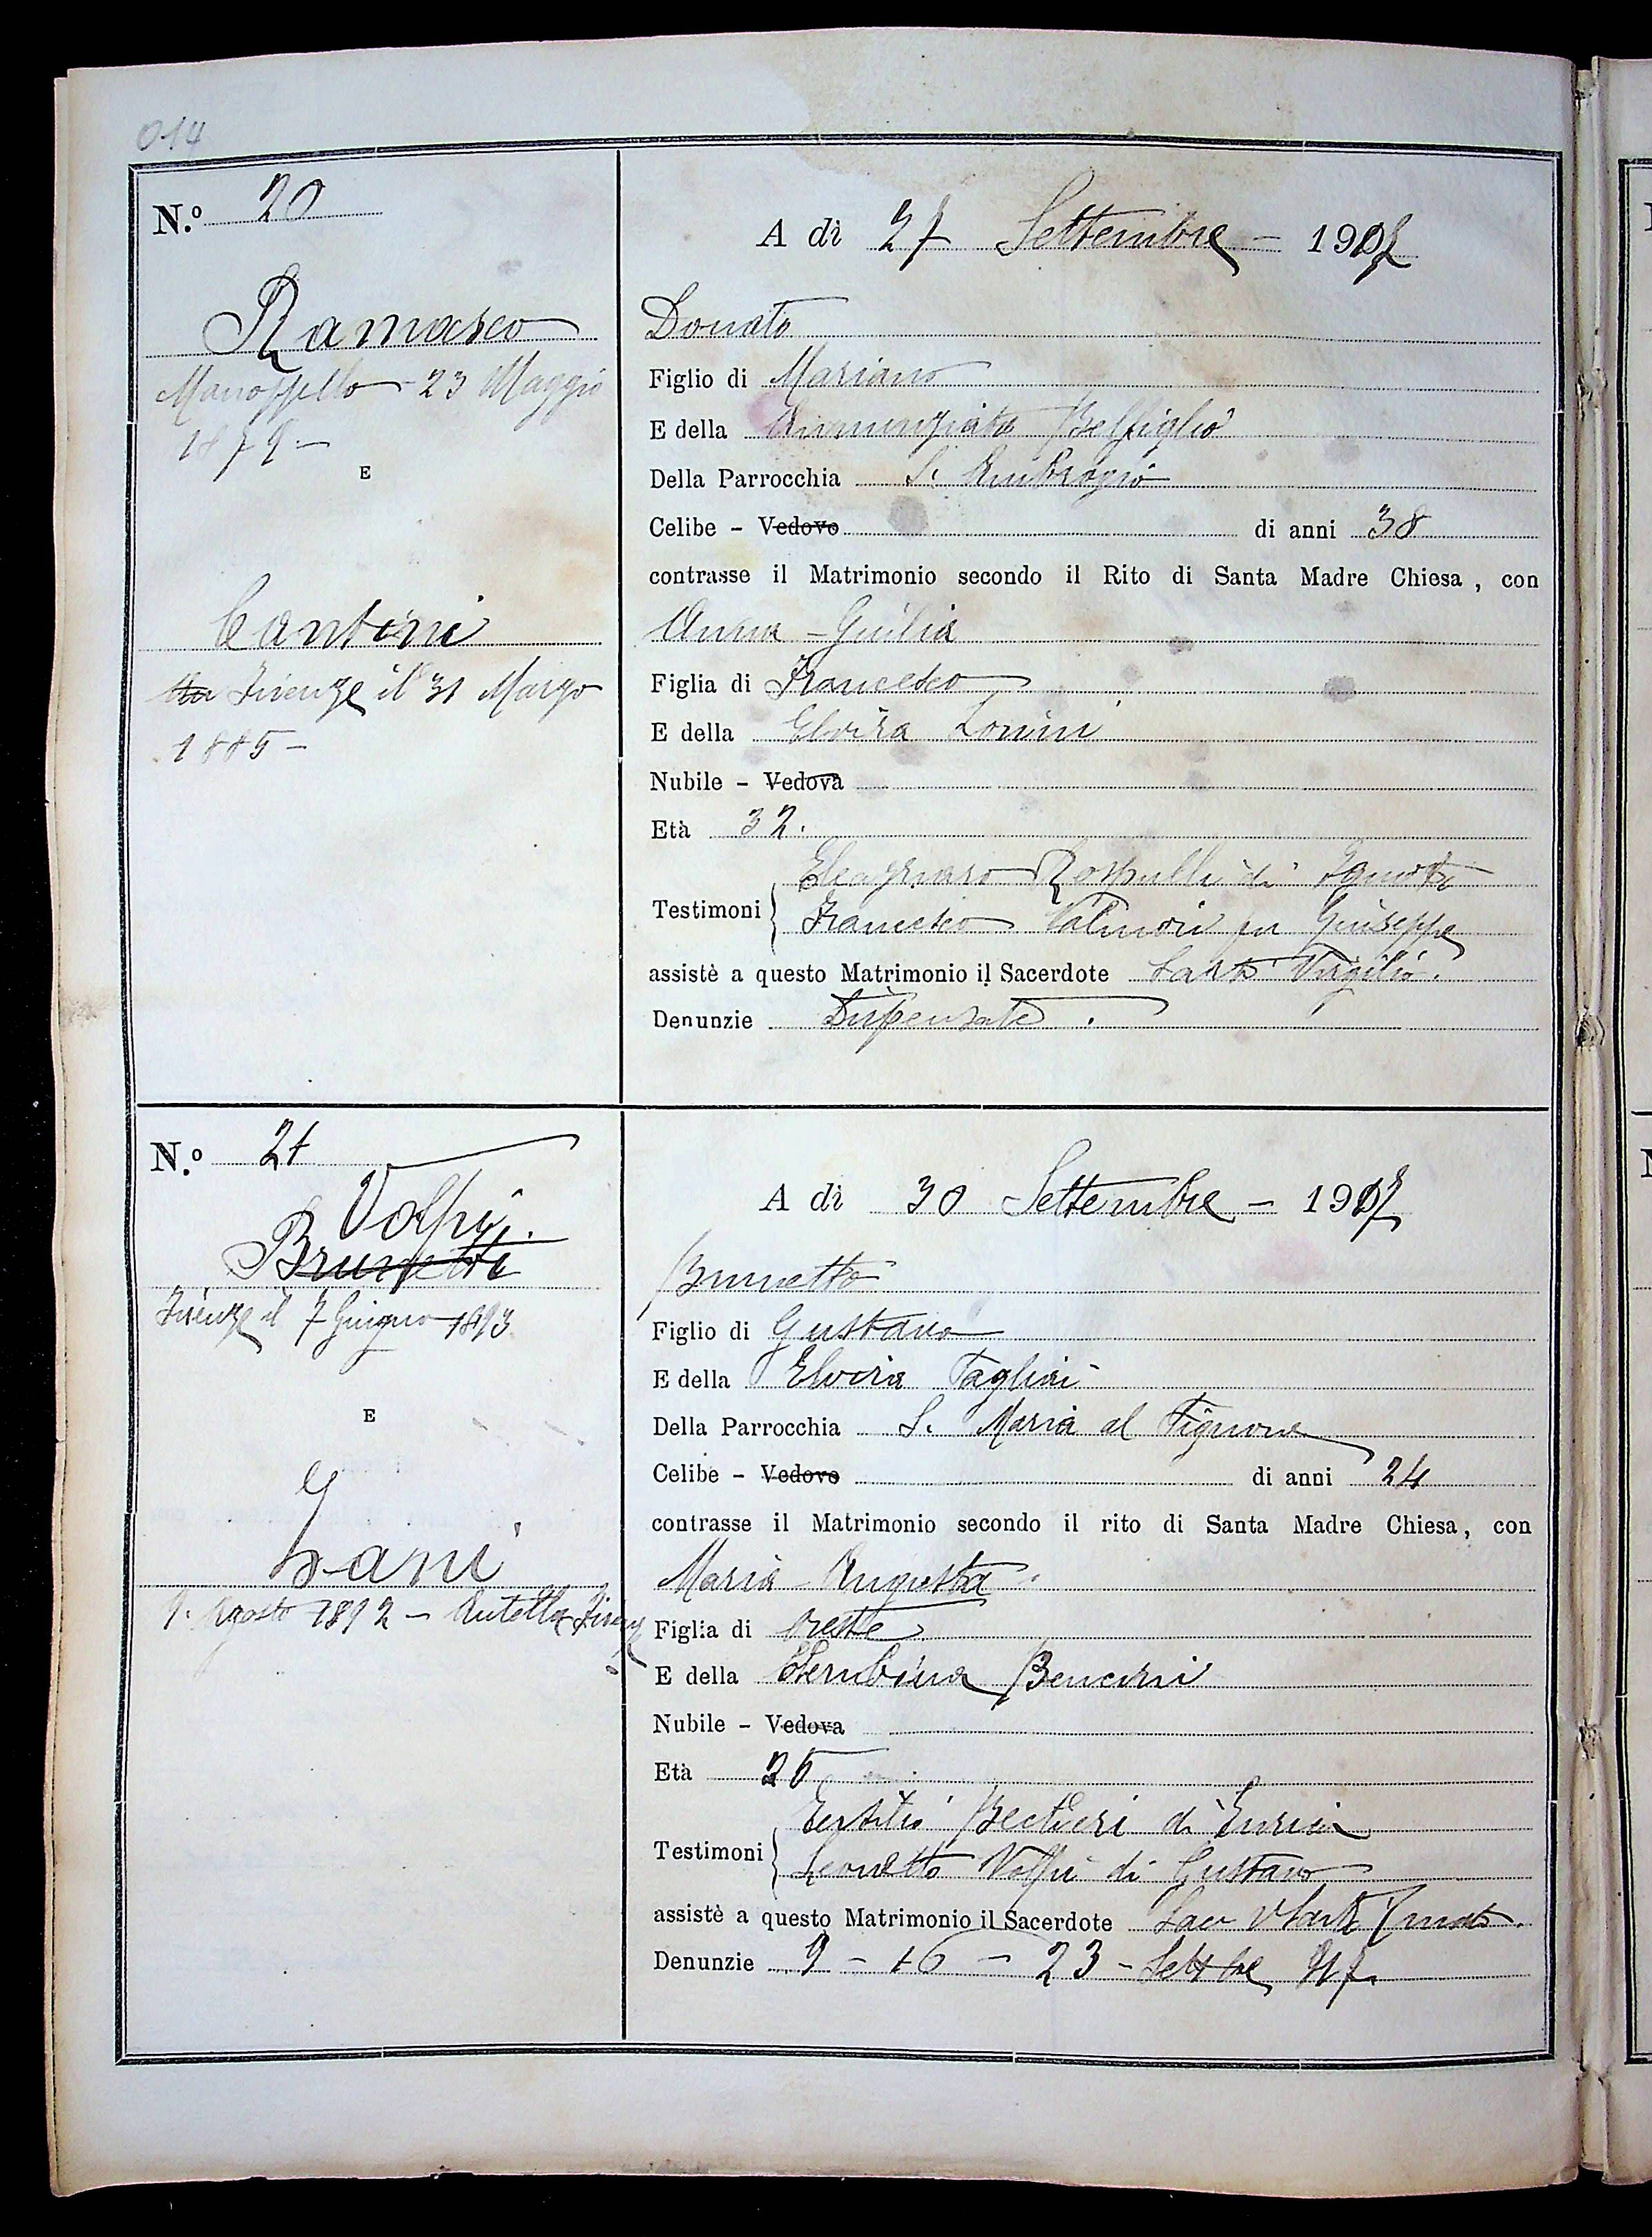 014
N.º 20
A dì 27 Settembre - 1917
Ramasco
Donato
Manoppello - 23 Maggio
1879 -
Figlio di Mariano
E della Annunziata Belfiglio
E
Della Parrocchia S. Ambrogio
Celibe - Vedovo di anni 38
contrasse il Matrimonio secondo il Rito di Santa Madre Chiesa, con
Cantini
Anna - Giulia
Firenze il 31 Marzo
1885 -
Figlia di Francesco
E della Elvira Lonini
Nubile - Vedova
Età 32.
Testimoni
Francesco Valmori fu Giuseppe
assistè a questo Matrimonio il Sacerdote Sarti Virgilio.
Denunzie Dispensate.
N.º 21
A dì 30 Settembre - 1917
Volpi.
Brunetti
Brunetto
Firenze il 7 Giugno 1893
Figlio di Gustavo
E della Elvira Tagliai
E
Della Parrocchia S. Maria al Pignone
Celibe - Vedovo di anni 24
contrasse il Matrimonio secondo il rito di Santa Madre Chiesa, con
Zani
Maria - Augusta
9. Agosto 1892 - Antella Firenze
Figlia di Oreste
E della Cherubina Bencini
Nubile - Vedova
Età 25
Testimoni
Leonetto Volpi di Gustavo
assistè a questo Matrimonio il Sacerdote
Denunzie 9 - 16 - 23 - Settbre 917.